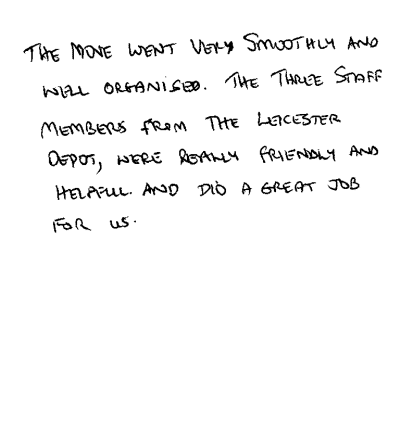 THE MOVE WENT VERY SMOOTHLY AND
WELL ORGANISED. THE THREE STAFF
MEMBERS FROM THE LEICESTER
DEPOT, WERE REALLY FRIENDLY AND
HELPFUL. AND DID A GREAT JOB
FOR US.